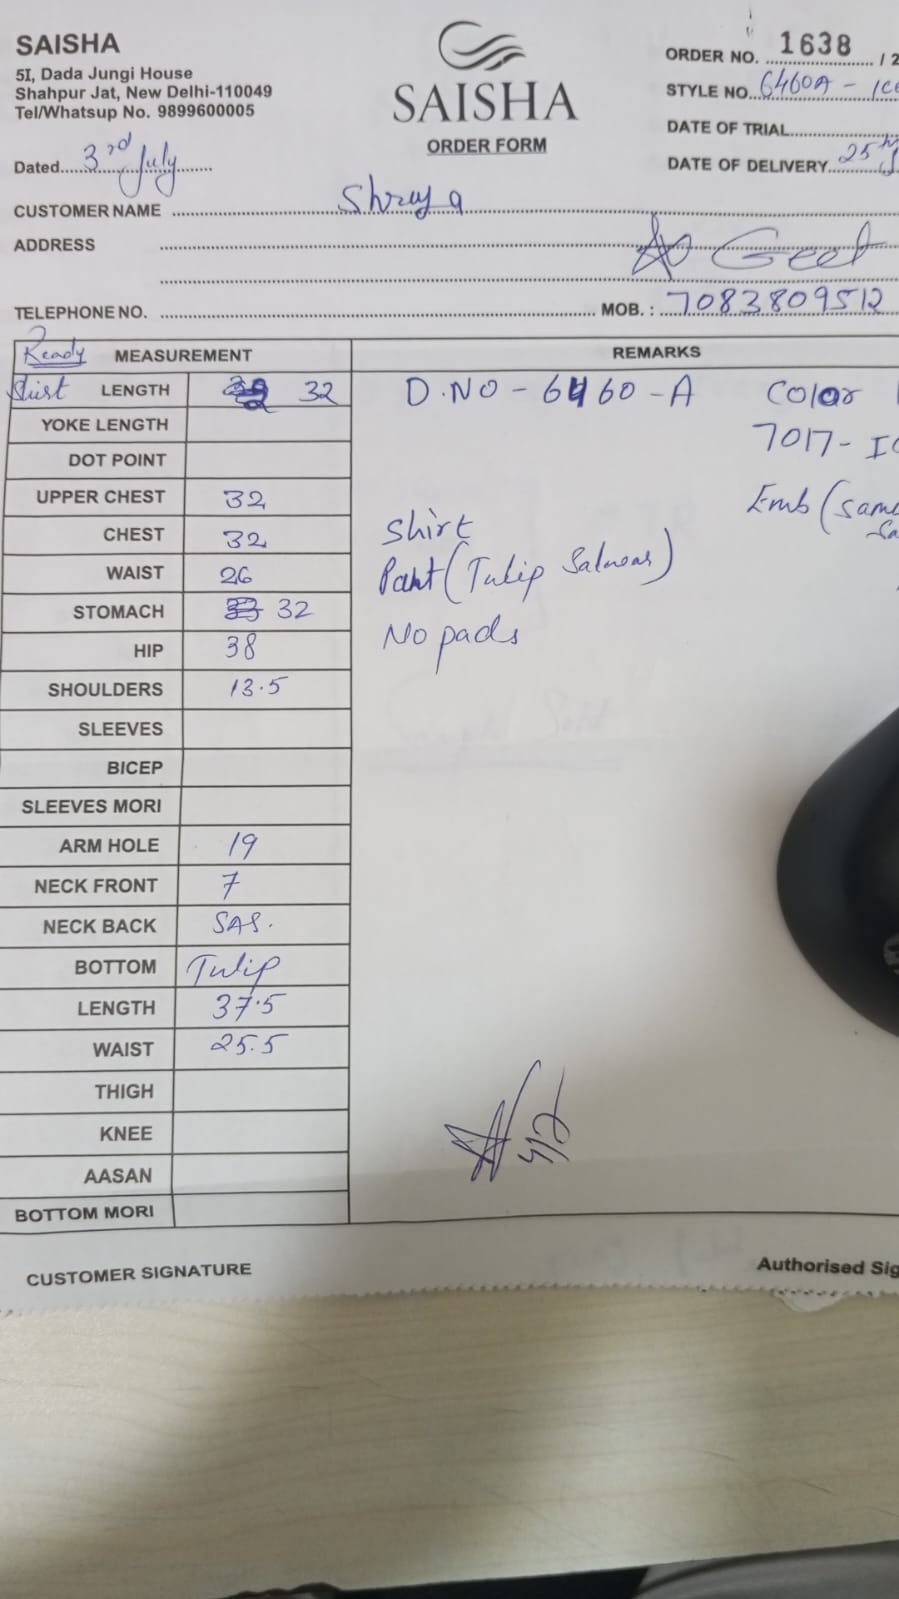 SAISHA
5I, Dada Jungi House
Shahpur Jat, New Delhi-110049
Tel/Whatsup No. 9899600005
SAISHA
ORDER FORM
ORDER NO. 1638 / 2
STYLE NO. 6460A -
DATE OF TRIAL
DATE OF DELIVERY 25th
Dated 3rd July
CUSTOMER NAME Shreya
ADDRESS
Geet
TELEPHONE NO. MOB. : 7083809512
Ready MEASUREMENT REMARKS
Shirt LENGTH 32 D.NO - 6460 - A Color
YOKE LENGTH 7017 -
DOT POINT
UPPER CHEST 32 Emb (same
CHEST 32 Shirt
WAIST 26 Pant (Tulip Salwar)
STOMACH 33 32 No pads
HIP 38
SHOULDERS 13.5
SLEEVES
BICEP
SLEEVES MORI
ARM HOLE 19
NECK FRONT 7
NECK BACK SAS.
BOTTOM Tulip
LENGTH 37.5
WAIST 25.5
THIGH
KNEE
AASAN
BOTTOM MORI
CUSTOMER SIGNATURE Authorised Sig